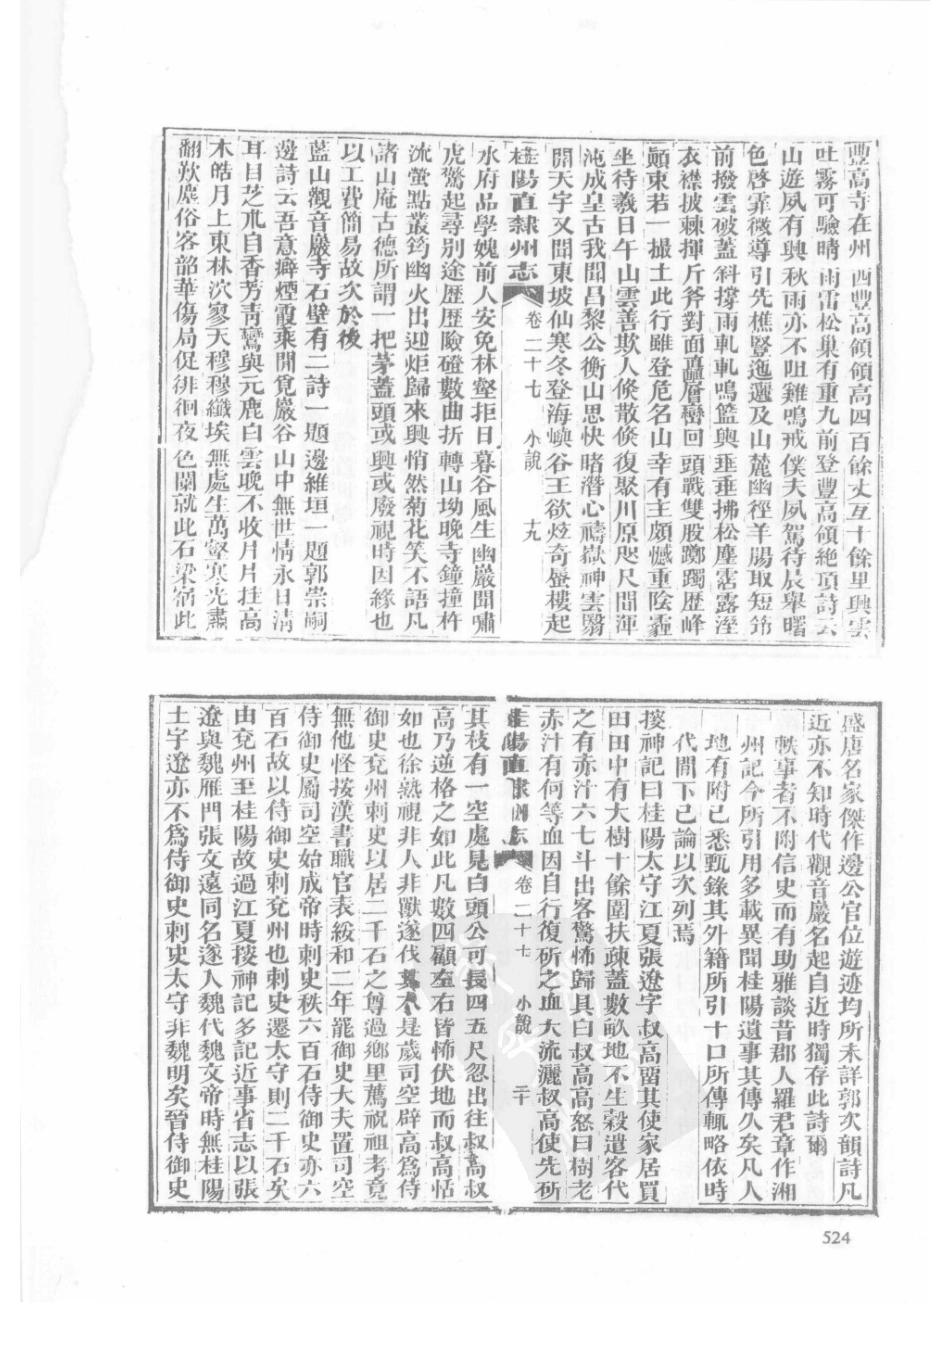 豐高寺在州西豐高嶺嶺高四百餘丈亙十餘里興雲
吐霧可驗晴雨雷松巢有重九前登豐高嶺絶頂詩云
山遊夙有興秋雨亦不阻雞鳴戒僕夫夙駕待晨舉曙
色啓霏微導引先樵豎迤邐及山麓幽徑羊腸取短笻
前撥雲破蓋斜撐雨軋軋鳴籃輿垂垂拂松塵霑露溼
衣襟披棘揮斤斧對面矗層巒回頭戰雙股躑躅歷峰
顛束若一撮土此行雖登危名山幸有主頗憾重陰霾
坐待羲日午山雲善欺人倏散倏復聚川原咫尺間渾
沌成皇古我聞昌黎公衡山思快睹潛心禱嶽神雲翳
開天宇又聞東坡仙寒冬登海嶼谷王欲炫奇蜃樓起
桂陽直隸州志 卷二十七 小說 十九
水府品學媿前人安免林壑拒日暮谷風生幽巖聞嘯
虎驚起尋別途歷歷險磴數曲折轉山坳晚寺鐘撞杵
流螢點叢筠幽火出迎炬歸來興悄然菊花笑不語凡
諸山庵古德所謂一把茅蓋頭或興或廢視時因緣也
以工費簡易故次於後
藍山觀音巖寺石壁有二詩一題邊維垣一題郭崇嗣
邊詩云吾意癖煙霞乘閒覓巖谷山中無世情永日淸
耳目芝朮自香芳靑鸞與元鹿白雲晚不收片片挂高
木皓月上東林泬寥天穆穆纖埃無處生萬壑寒光肅
翻歎塵俗客韶華傷局促徘徊夜色闌就此石梁宿此
盛唐名家傑作邊公官位遊迹均所未詳郭次韻詩凡
近亦不知時代觀音巖名起自近時獨存此詩爾
軼事者不附信史而有助雅談昔郡人羅君章作湘
州記今所引用多載異聞桂陽遺事其傳久矣凡人
地有附已悉甄錄其外籍所引十口所傳輒略依時
代閒下已論以次列焉
搜神記曰桂陽太守江夏張遼字叔高留其使家居買
田田中有大樹十餘圍扶疎蓋數畝地不生穀遣客伐
之有赤汁六七斗出客驚怖歸具白叔高高怒曰樹老
赤汁有何等血因自行復斫之血大流灑叔高使先斫
桂陽直隸州志 卷二十七 小說 二十
其枝有一空處見白頭公可長四五尺忽出往叔高叔
高乃逆格之如此凡數四顧左右皆怖伏地而叔高恬
如也徐熟視非人非獸遂伐其木是歲司空辟高爲侍
御史兗州刺史以居二千石之尊過鄉里薦祝祖考竟
無他怪按漢書職官表綏和二年罷御史大夫置司空
侍御史屬司空始成帝時刺史秩六百石侍御史亦六
百石故以侍御史刺兗州也刺史遷太守則二千石矣
由兗州至桂陽故過江夏搜神記多記近事省志以張
遼與魏雁門張文遠同名遂入魏代魏文帝時無桂陽
土字遼亦不爲侍御史刺史太守非魏明矣晉侍御史
524